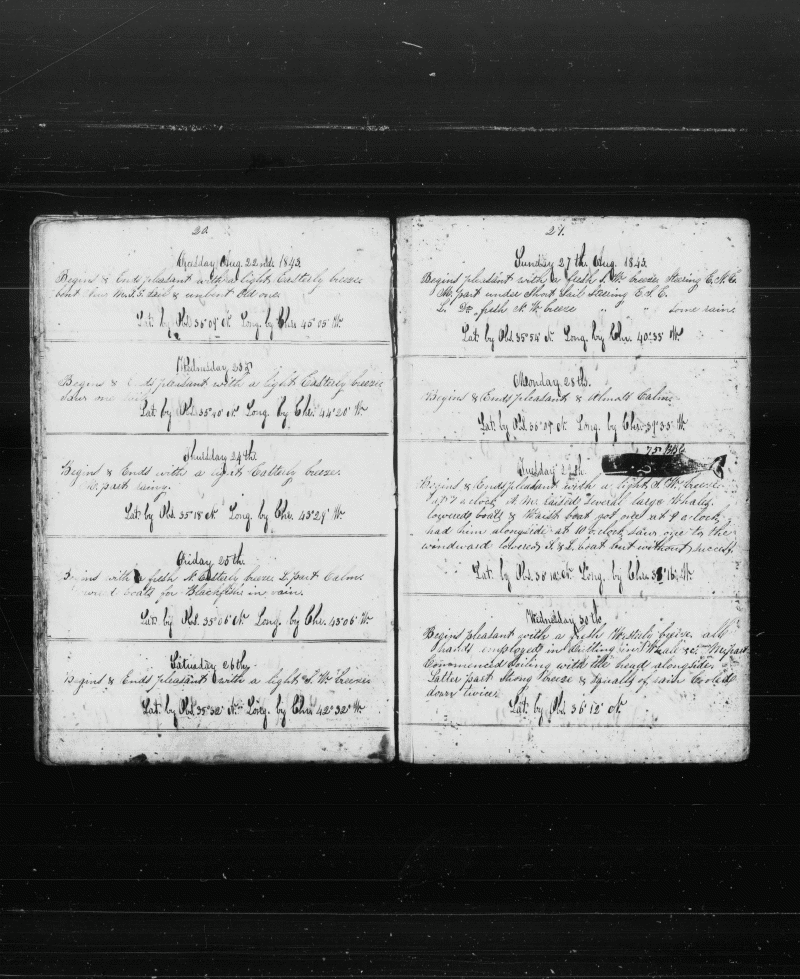 20.
Tuesday Aug. 22nd. 1843.
Begins & Ends pleasant with a light Easterly breeze
bent New M.T. Sail & unbent Old one
Lat. by Obs. 35°09' N. Long. by Chr. 45°05' W.
Wednesday 23d
Begins & Ends pleasant with a light Easterly breeze
saw one
Lat. by Obs. 35°40' N. Long. by Chr. 44°20' W.
Thursday 24th.
Begins & Ends with a light Easterly breeze.
M. part rainy.
Lat. by Obs. 35°18' N. Long. by Chr. 43°29' W.
Friday 25th.
Begins with a fresh N. Easterly breeze L. part Calm.
Lowered boats for Blackfish in vain.
Lat. by Obs. 35°06' N. Long. by Chr. 43°06' W.
Saturday 26th.
Begins & Ends pleasant with a light S. W. breeze
Lat. by Obs. 35°32' N. Long. by Chr. 42°32' W.
21.
Sunday 27th. Aug. 1843.
Begins pleasant with a fresh S. W. breeze Steering E.N.E.
M. part under Short Sail Steering E.S.E.
L. Do. fresh N. W. breeze " " " some rain.
Lat. by Obs. 35°54' N. Long. by Chr. 40°33' W.
Monday 28th.
Begins & Ends pleasant & Almost Calm.
Lat. by Obs. 36°09' N. Long. by Chr. 39°35' W.
75 Bbls
Tuesday 29th
Begins & Ends pleasant with a light S. W. breeze.
7 o'clock A. M. raised several large Whales.
lowered boats & Waist boat got one at 9 o'clock,
had him alongside at 10 o'clock, saw one to the
windward lowered S. & L. boat but without success.
Lat. by Obs. N. Long. by Chr. W.
Wednesday 30th
Begins pleasant with a fresh Westerly breeze. all
hands employed in cutting in Whale &c. Mid part
Commenced boiling with the head alongside.
Latter part Strong breeze & Squally of rain Cooled
down twice.
Lat. by Obs. 36°12' N.